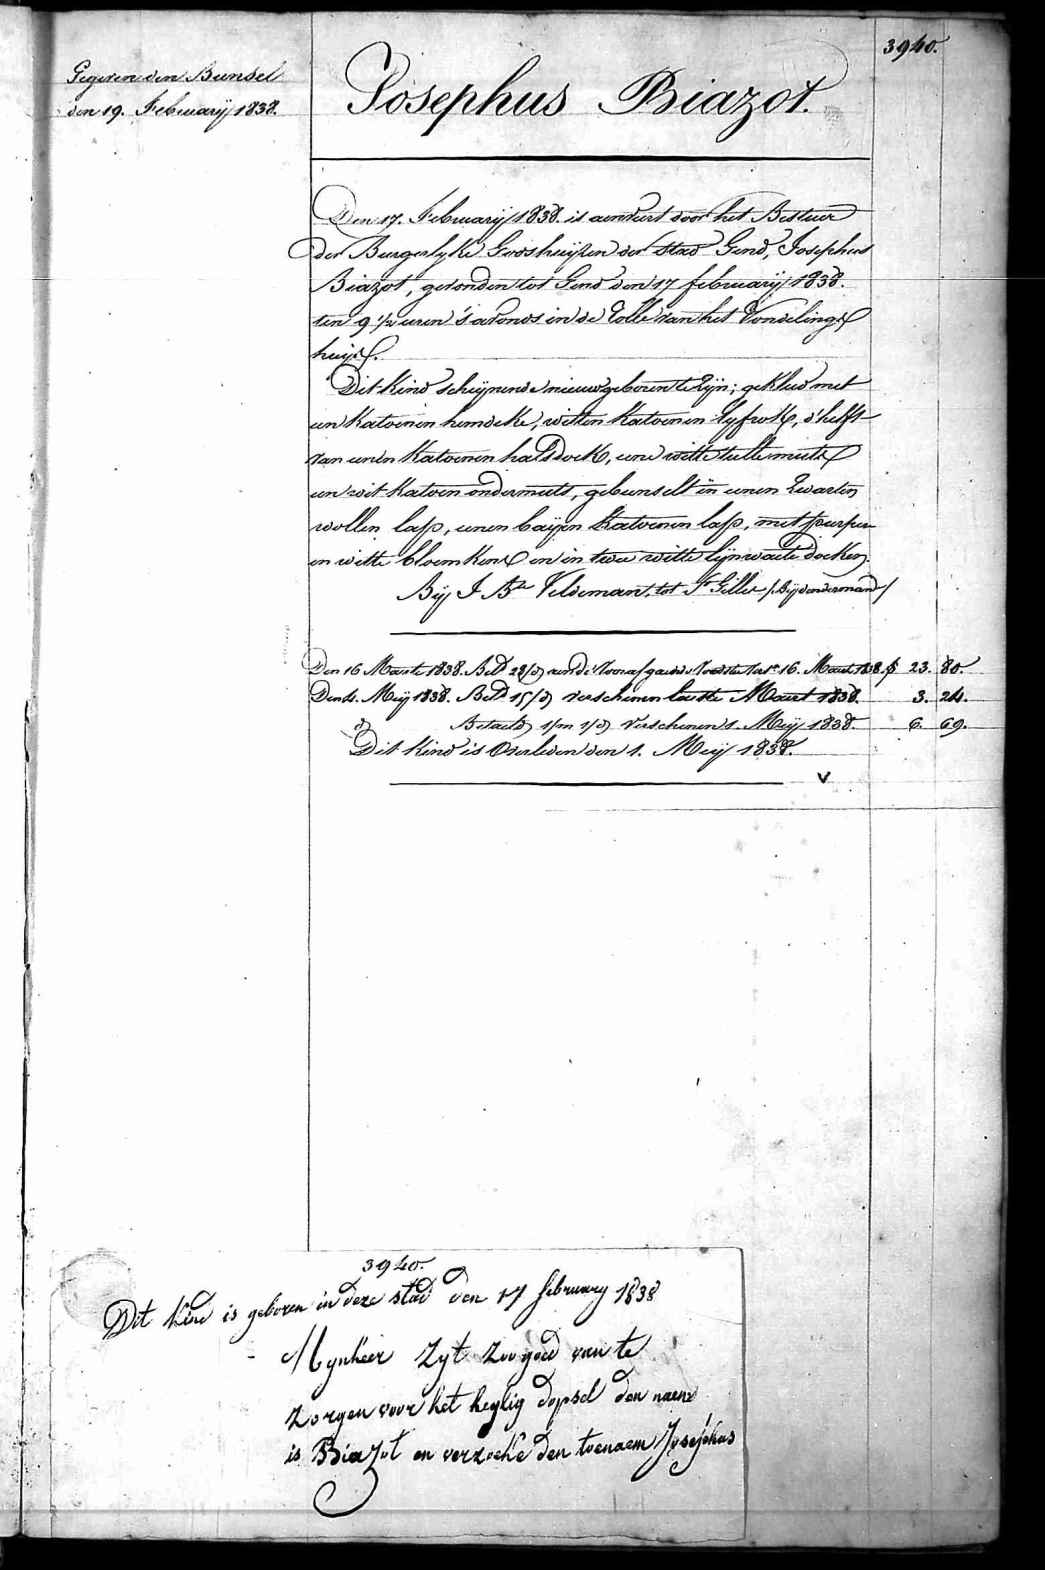 3940.
Gegeven den Bunsel
den 19. February 1838.
Josephus Biazot.
Den 17. February 1838. is aenveirt door het Bestuer
der Burgerlyke Godshuijsen der Stad Gend, Josephus
Biazot, gevonden tot Gend den 17 february 1838.
ten 9 1/2 uren 's avonds in de Rolle van het Vondelings
huijs.
Dit kind scheijnende nieuwgeboren te Zijn; gekleed met
een katoenen hemdeke, witten katoenen lyfrok, d'helft
van eenen katoenen halsdoek, eene witte tulle muts
een wit katoen ondermuts, gebunselt in eenen Zwarten
wollen lap, eenen baijen katoenen lap, met purper
en witte bloemkens en in twee witte lijnwaete doeken.
Bij J. Bte Veldeman, tot St Gillis /:Bij dendermond:/
Den 16 Maerte 1838. Betd 28/d aen de voorafgaende voedster tot 16. Maert 1838. f 23. 80.
Den 4. Meij 1838. Betd 15/d verschenen laetste Maert 1838. 3. 24.
d Betaeld 1/m 1/d verschenen 1. Meij 1838. 6. 69.
Dit kind is Overleden den 1. Meij 1838.
3940.
Dit kind is geboren in deze stad den 17 february 1838
Mynheer Zyt Zoo goed van te
zorgen voor het heylig dopsel den naem
is Biazot en verzoeke den toenaem Josephus